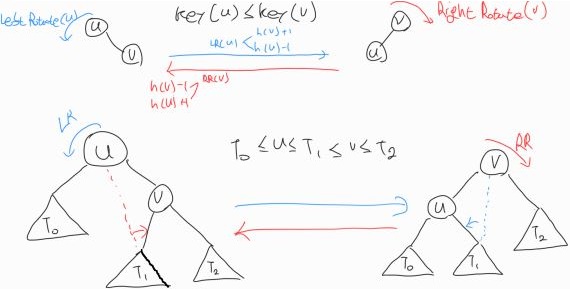 Left Rotate(u)
u
v
key(u) ≤ key(v)
LR(u)
h(v)+1
h(u)-1
h(v)-1
h(u)+1
RR(v)
v
u
Right Rotate(v)
LR
u
v
T0
T1
T2
T0 ≤ u ≤ T1 ≤ v ≤ T2
RR
v
u
T0
T1
T2